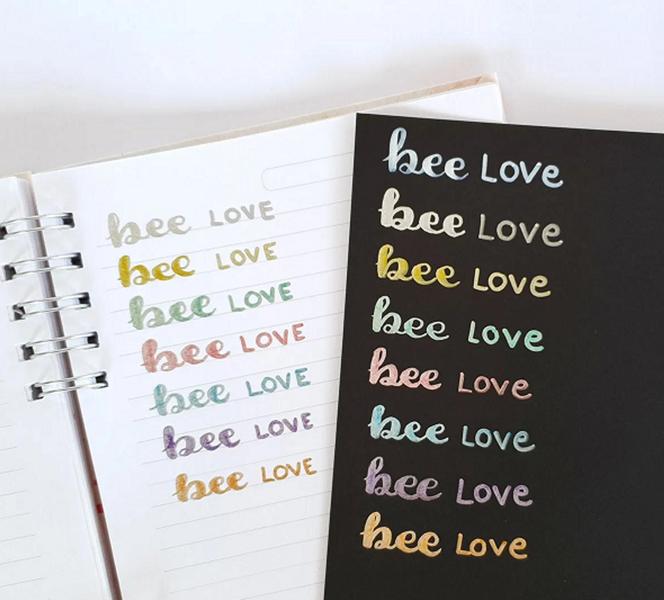 bee LOVE
bee LOVE
bee LOVE
bee LOVE
bee LOVE
bee LOVE
bee LOVE
bee Love
bee Love
bee Love
bee Love
bee Love
bee Love
bee Love
bee Love